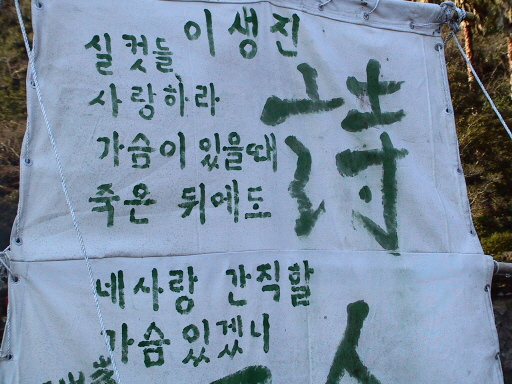 이생진
詩
실컷들
사랑하라
가슴이 있을때
죽은 뒤에도
네사랑 간직할
가슴 있겠니